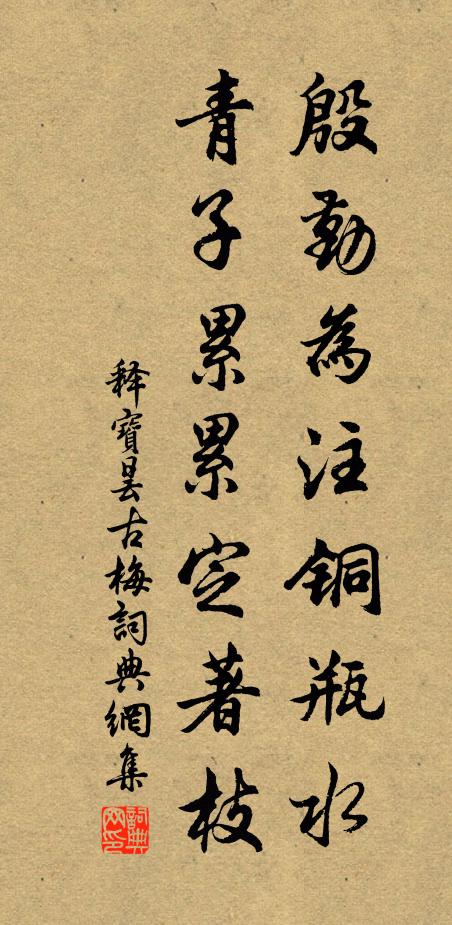 殷勤為注銅瓶水
青子累累定著枝
釋寶曇古梅詞典網集
詞典网印